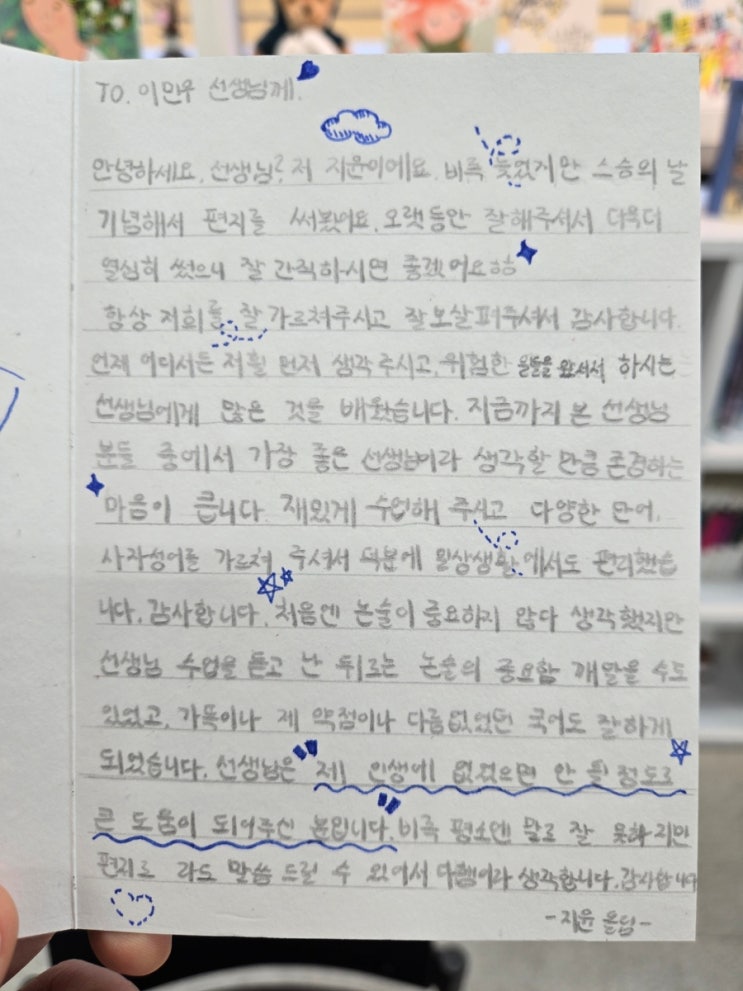 TO. 이민우 선생님께.
안녕하세요, 선생님? 저 지윤이에요. 비록 늦었지만 스승의 날
기념해서 편지를 써봤어요. 오랫동안 잘해주셔서 더욱더
열심히 썼으니 잘 간직하시면 좋겠어요ㅎㅎ
항상 저희를 잘 가르쳐주시고 잘 보살펴주셔서 감사합니다.
언제 어디서든 저흴 먼저 생각 주시고, 위험한 앞서서 하시는
선생님에게 많은 것을 배웠습니다. 지금까지 본 선생님
분들 중에서 가장 좋은 선생님이라 생각할 만큼 존경하는
마음이 큽니다. 재밌게 수업해 주시고 다양한 단어,
사자성어를 가르쳐 주셔서 덕분에 일상생활에서도 편리했습
니다. 감사합니다. 처음엔 논술이 중요하지 않다 생각했지만
선생님 수업을 듣고 난 뒤로는 논술의 중요함 깨달을 수도
있었고, 가뜩이나 제 약점이나 다름없었던 국어도 잘하게
되었습니다. 선생님은 "제 인생에 없었으면 안 될 정도로
큰 도움이 되어주신 분입니다." 비록 평소엔 말로 잘 못하지만
편지로 라도 말씀 드릴 수 있어서 다행이라 생각합니다. 감사합니다
-지윤 올림-